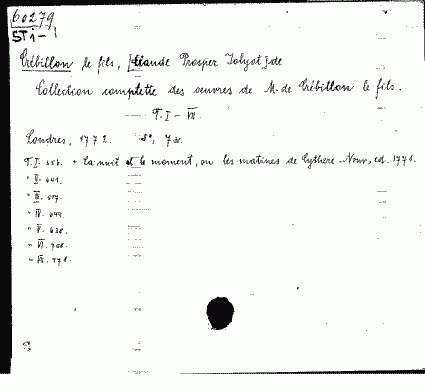 60279
ST 1-1
Crébillon le fils, [Claude Prosper Jolyot] de
Collection complette des œuvres de M. de Crébillon le fils.
T. I - VII.
Londres, 1772. 8°, 7 dr.
T. I. + La nuit et le moment, ou les matines de Cythere. Nouv. ed. 1771.
" II.
" III.
" IV.
" V. 638.
" VI.
" VII.